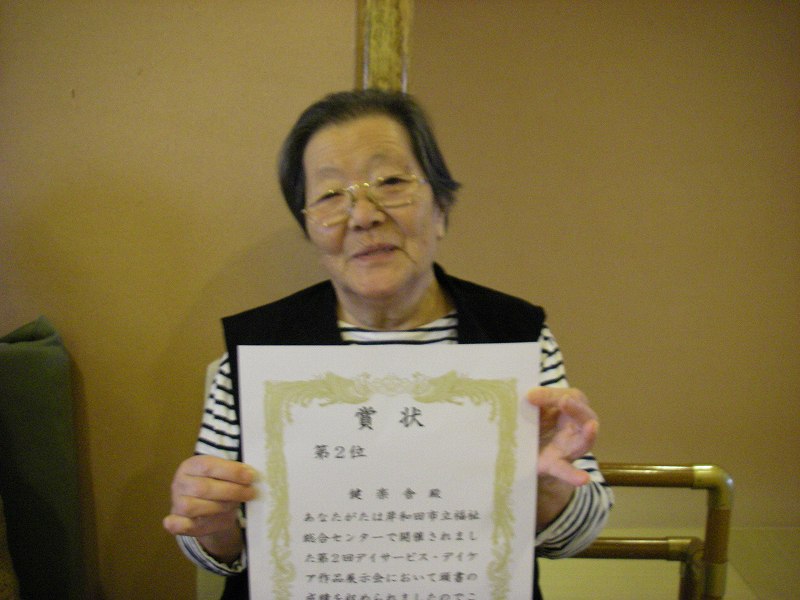 賞状
第2位
健楽舎殿
あなたがたは岸和田市立福祉
総合センターで開催されまし
た第2回デイサービス・デイケ
ア作品展示会において頭書の
成績を収められましたのでこ